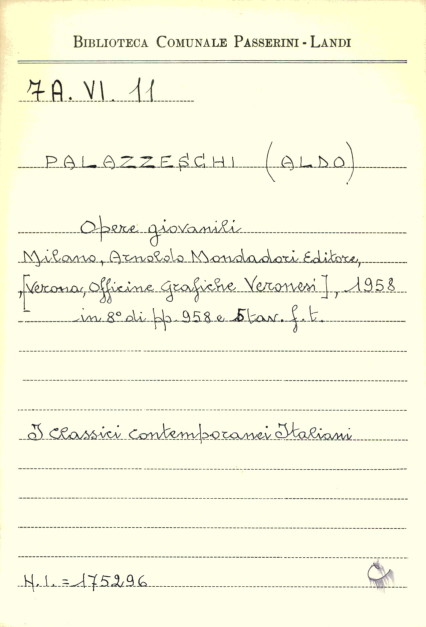 BIBLIOTECA COMUNALE PASSERINI - LANDI
7A. VI. 11
PALAZZESCHI (ALDO)
Opere giovanili
Milano, Arnoldo Mondadori Editore,
[Verona, Officine Grafiche Veronesi], 1958
in 8° di pp. 958 e 5 tav. f. t.
I Classici contemporanei Italiani
N. I. = 175296